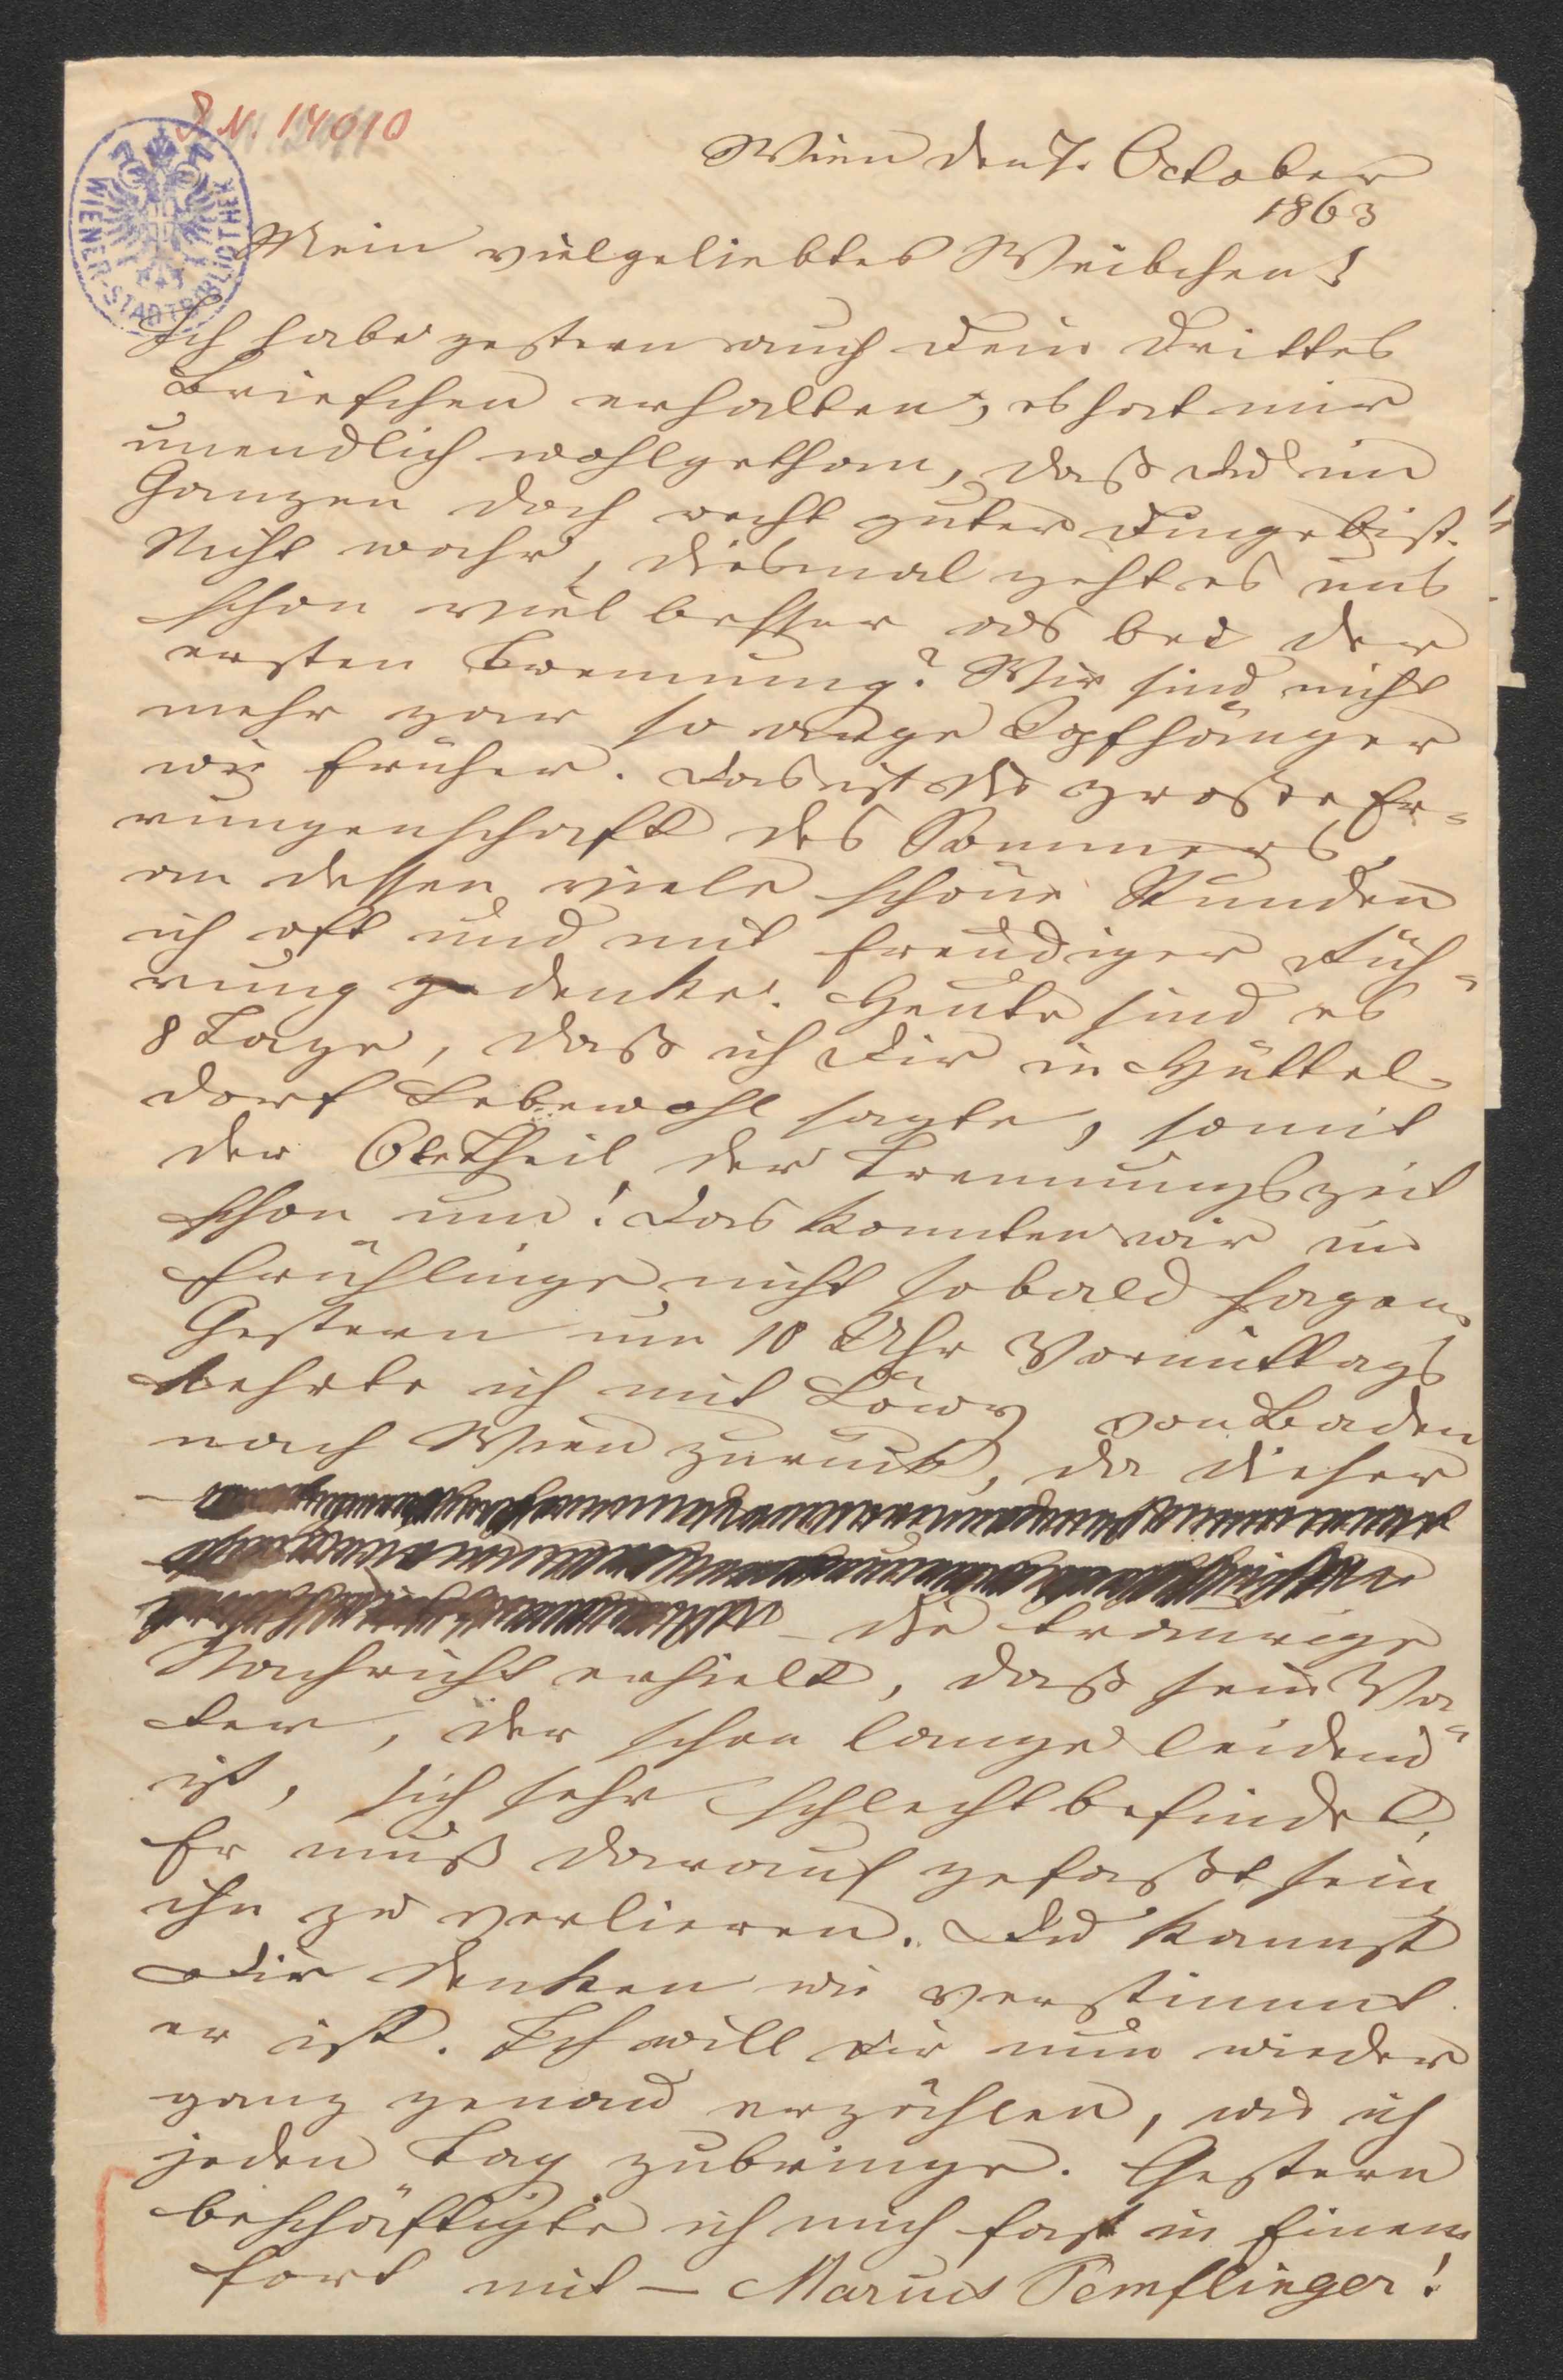 J. N. 14010
WIENER-STADTBIBLIOTHEK
Wien den 7. October
1863
Mein vielgeliebtes Weibchen!
Ich habe gestern auch Dein drittes
Briefchen erhalten; es hat mir
unendlich wohlgethan, daß Du im
Ganzen doch recht guter Dinge bist.
Nicht wahr, diesmal geht es uns
schon viel besser als bei der
ersten Trennung? Wir sind nicht
mehr gar so arge Kopfhänger
wie früher. Das ist die große Er-
rungenschaft des Sommers,
an dessen viele schöne Stunden
ich oft und mit freudiger Rüh-
rung gedenke. Heute sind es
8 Tage, daß ich Dir in Hüttel-
dorf Lebewohl sagte, somit
der Theil der Trennungszeit
schon um! Das konnten wir im
Frühlinge nicht sobald sagen.
Gestern um 10 Uhr Vormittags
kehrte ich mit Löwy von Baden
nach Wien zurück, da dieser
– die traurige
Nachricht erhielt, daß sein Va-
ter, der schon lange leidend
ist, sich sehr schlecht befindet.
Er muß darauf gefaßt sein
ihn zu verlieren. Du kannst
Dir denken wie verstimmt
er ist. Ich will Dir nun wieder
ganz genau erzählen, wie ich
jeden Tag zubringe. Gestern
beschäftigte ich mich fast in Einem
fort mit – Marcus Pemflinger!